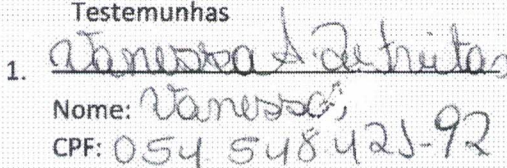 Testemunhas
1. Vanessa A. de Freitas
Nome: Vanessa
CPF: 054 548.421-92